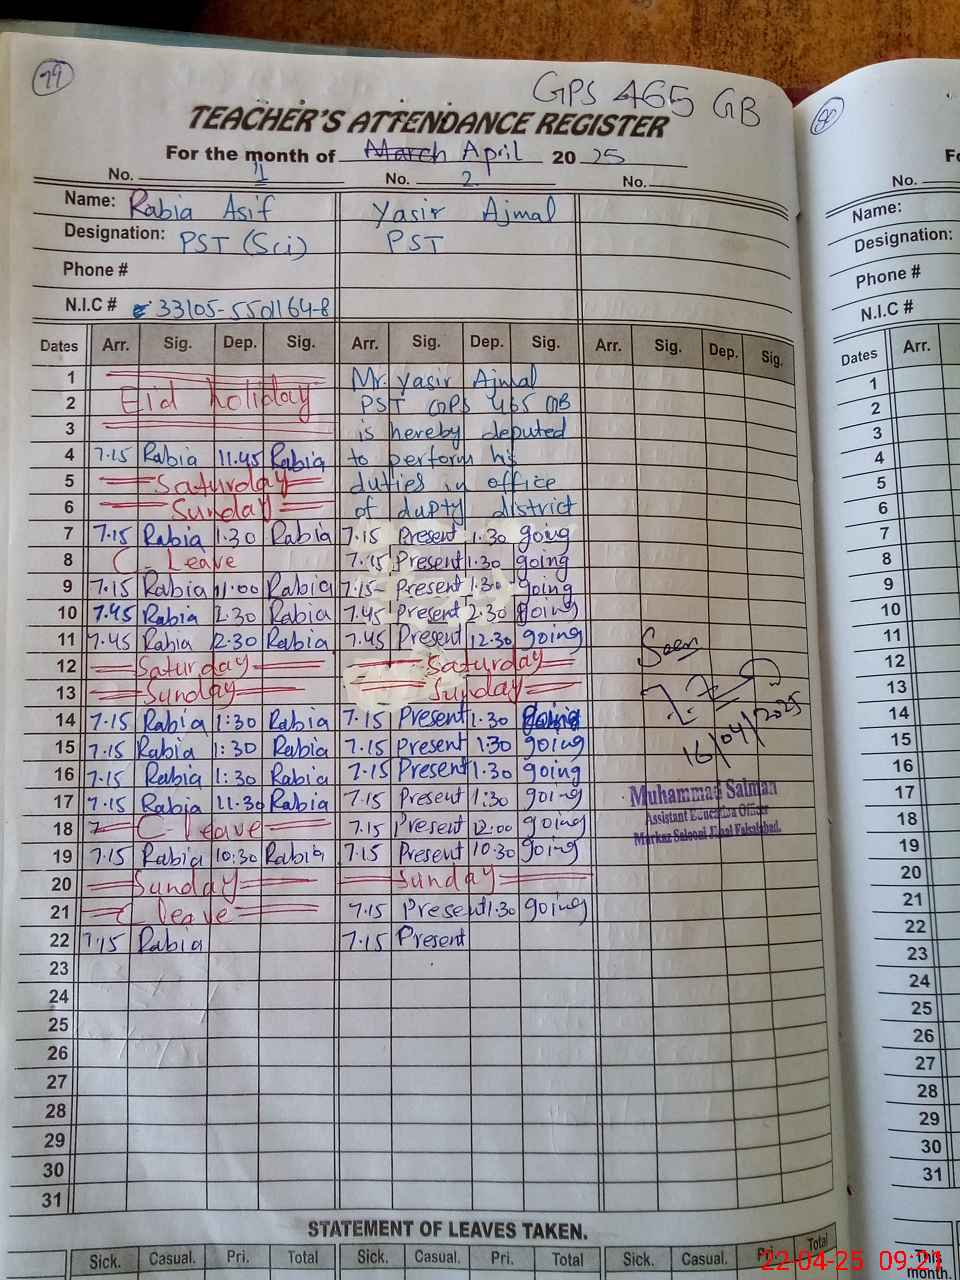 79
GPS 465 GB
TEACHER'S ATTENDANCE REGISTER
For the month of March April 2025
No. 1 No. 2 No.
Name: Rabia Asif Yasir Ajmal
Designation: PST (Sci) PST
Phone #
N.I.C # 33105-5501164-8
Dates Arr. Sig. Dep. Sig. Arr. Sig. Dep. Sig. Arr. Sig. Dep. Sig.
1 Mr. Yasir Ajmal
2 Eid holiday PST GPS 465 GB
3 is hereby deputed
4 7.15 Rabia 11.45 Rabia to perform his
5 Saturday duties in office
6 Sunday of dupty district
7 7.15 Rabia 1.30 Rabia 7.15 Present 1.30 going
8 C. Leave 7.15 Present 1.30 going
9 7.15 Rabia 11.00 Rabia 7.15 Present 1.30 going
10 7.45 Rabia 2.30 Rabia 7.45 Present 2.30 going
11 7.45 Rabia 12.30 Rabia 7.45 Present 12.30 going
12 Saturday Saturday
13 Sunday Sunday
14 7.15 Rabia 1:30 Rabia 7.15 Present 1.30 going
15 7.15 Rabia 1:30 Rabia 7.15 Present 1.30 going
16 7.15 Rabia 1:30 Rabia 7.15 Present 1.30 going
17 7.15 Rabia 11.30 Rabia 7.15 Present 1:30 going
18 7 C leave 7.15 Present 12:00 going
19 7.15 Rabia 10:30 Rabia 7.15 Present 10.30 going
20 Sunday Sunday
21 C leave 7.15 Present 1.30 going
22 7.15 Rabia 7.15 Present
23
24
25
26
27
28
29
30
31
Seen
16/04/2025
Muhammad Salman
Assistant Education Officer
Markaz Salooni Jhal Faisalabad.
STATEMENT OF LEAVES TAKEN.
Sick. Casual. Pri. Total Sick. Casual. Pri. Total Sick. Casual. Pri. Total
80
No.
Name:
Designation:
Phone #
N.I.C #
Dates Arr.
1
2
3
4
5
6
7
8
9
10
11
12
13
14
15
16
17
18
19
20
21
22
23
24
25
26
27
28
29
30
31
This
month.
22-04-25 09:21